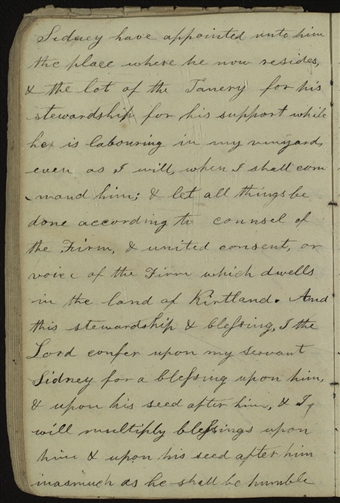 Sidney have appointed unto him
the place where he now resides,
& the lot of the Tanery for his
stewardship for his support while
he is labouring in my vinyard,
even as I will, when I shall com
mand him; & let all things be
done according to counsel of
the Firm, & united consent, or
voice of the Firm which dwells
in the land of Kirtland. And
this stewardship & blessing, I the
Lord confer upon my servant
Sidney for a blessing upon him,
& upon his seed after him, & I,
will multiply blessings upon
him & upon his seed after him
inasmuch as he shall be humble